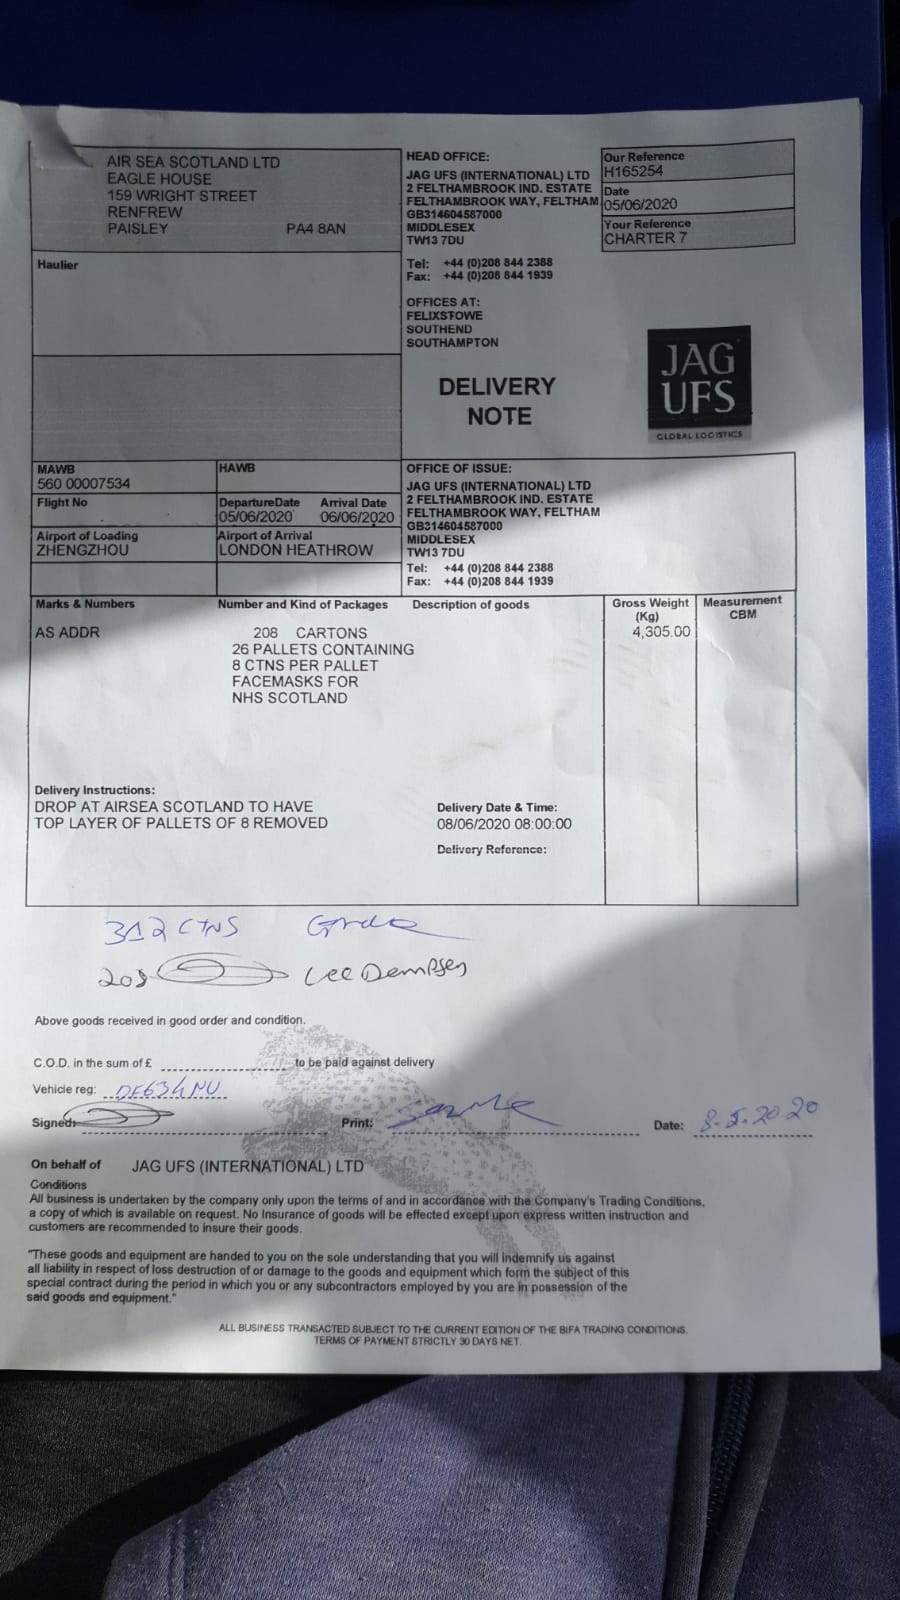 AIR SEA SCOTLAND LTD
EAGLE HOUSE
159 WRIGHT STREET
RENFREW
PAISLEY PA4 8AN
HEAD OFFICE:
JAG UFS (INTERNATIONAL) LTD
2 FELTHAMBROOK IND. ESTATE
FELTHAMBROOK WAY, FELTHAM
GB314604587000
MIDDLESEX
TW13 7DU
Tel: +44 (0)208 844 2388
Fax: +44 (0)208 844 1939
OFFICES AT:
FELIXSTOWE
SOUTHEND
SOUTHAMPTON
Our Reference
H165254
Date
05/06/2020
Your Reference
CHARTER 7
Haulier
DELIVERY
NOTE
JAG
UFS
GLOBAL LOGISTICS
MAWB
560 00007534
HAWB
Flight No
DepartureDate Arrival Date
05/06/2020 06/06/2020
Airport of Loading
ZHENGZHOU
Airport of Arrival
LONDON HEATHROW
OFFICE OF ISSUE:
JAG UFS (INTERNATIONAL) LTD
2 FELTHAMBROOK IND. ESTATE
FELTHAMBROOK WAY, FELTHAM
GB314604587000
MIDDLESEX
TW13 7DU
Tel: +44 (0)208 844 2388
Fax: +44 (0)208 844 1939
Marks & Numbers Number and Kind of Packages Description of goods Gross Weight (Kg) Measurement CBM
AS ADDR 208 CARTONS 4,305.00
26 PALLETS CONTAINING
8 CTNS PER PALLET
FACEMASKS FOR
NHS SCOTLAND
Delivery Instructions:
DROP AT AIRSEA SCOTLAND TO HAVE
TOP LAYER OF PALLETS OF 8 REMOVED
Delivery Date & Time:
08/06/2020 08:00:00
Delivery Reference:
312 CTNS
208 Lee Dempsey
Above goods received in good order and condition.
C.O.D. in the sum of £ to be paid against delivery
Vehicle reg: DE634NU
Signed: Print: Date: 8-5.2020
On behalf of JAG UFS (INTERNATIONAL) LTD
Conditions
All business is undertaken by the company only upon the terms of and in accordance with the Company's Trading Conditions,
a copy of which is available on request. No Insurance of goods will be effected except upon express written instruction and
customers are recommended to insure their goods.
"These goods and equipment are handed to you on the sole understanding that you will indemnify us against
all liability in respect of loss destruction of or damage to the goods and equipment which form the subject of this
special contract during the period in which you or any subcontractors employed by you are in possession of the
said goods and equipment."
ALL BUSINESS TRANSACTED SUBJECT TO THE CURRENT EDITION OF THE BIFA TRADING CONDITIONS.
TERMS OF PAYMENT STRICTLY 30 DAYS NET.